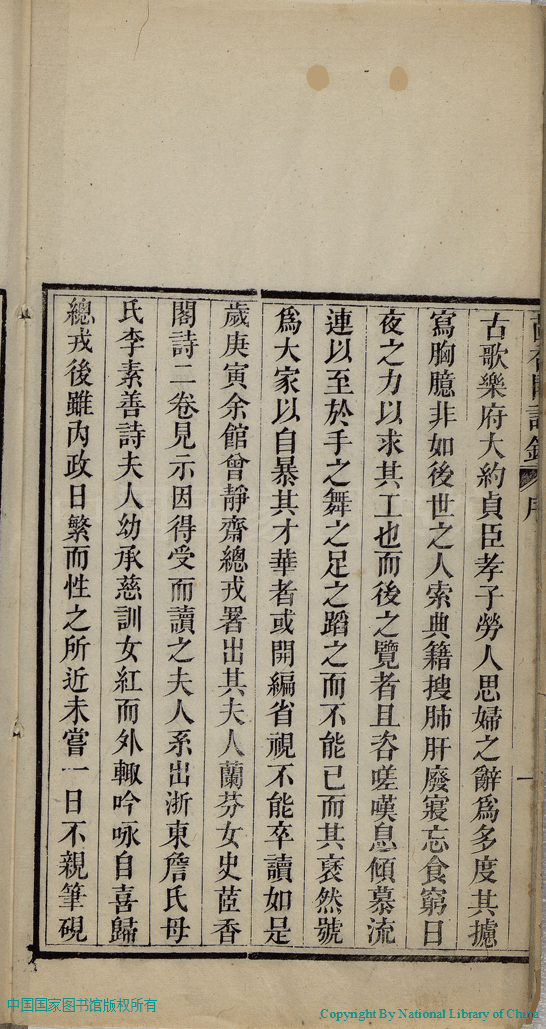 古歌樂府大約貞臣孝子勞人思婦之辭爲多度其攄
寫胸臆非如後世之人索典籍搜肺肝廢寢忘食窮日
夜之力以求其工也而後之覽者且咨嗟嘆息傾慕流
連以至於手之舞之足之蹈之而不能已而其裒然號
爲大家以自暴其才華者或開編省視不能卒讀如是
歲庚寅余館曾靜齋總戎署出其夫人蘭芬女史茝香
閣詩二卷見示因得受而讀之夫人系出浙東詹氏母
氏李素善詩夫人幼承慈訓女紅而外輒吟咏自喜歸
總戎後雖內政日繁而性之所近未嘗一日不親筆硯
中国国家图书馆版权所有
Copyright By National Library of China